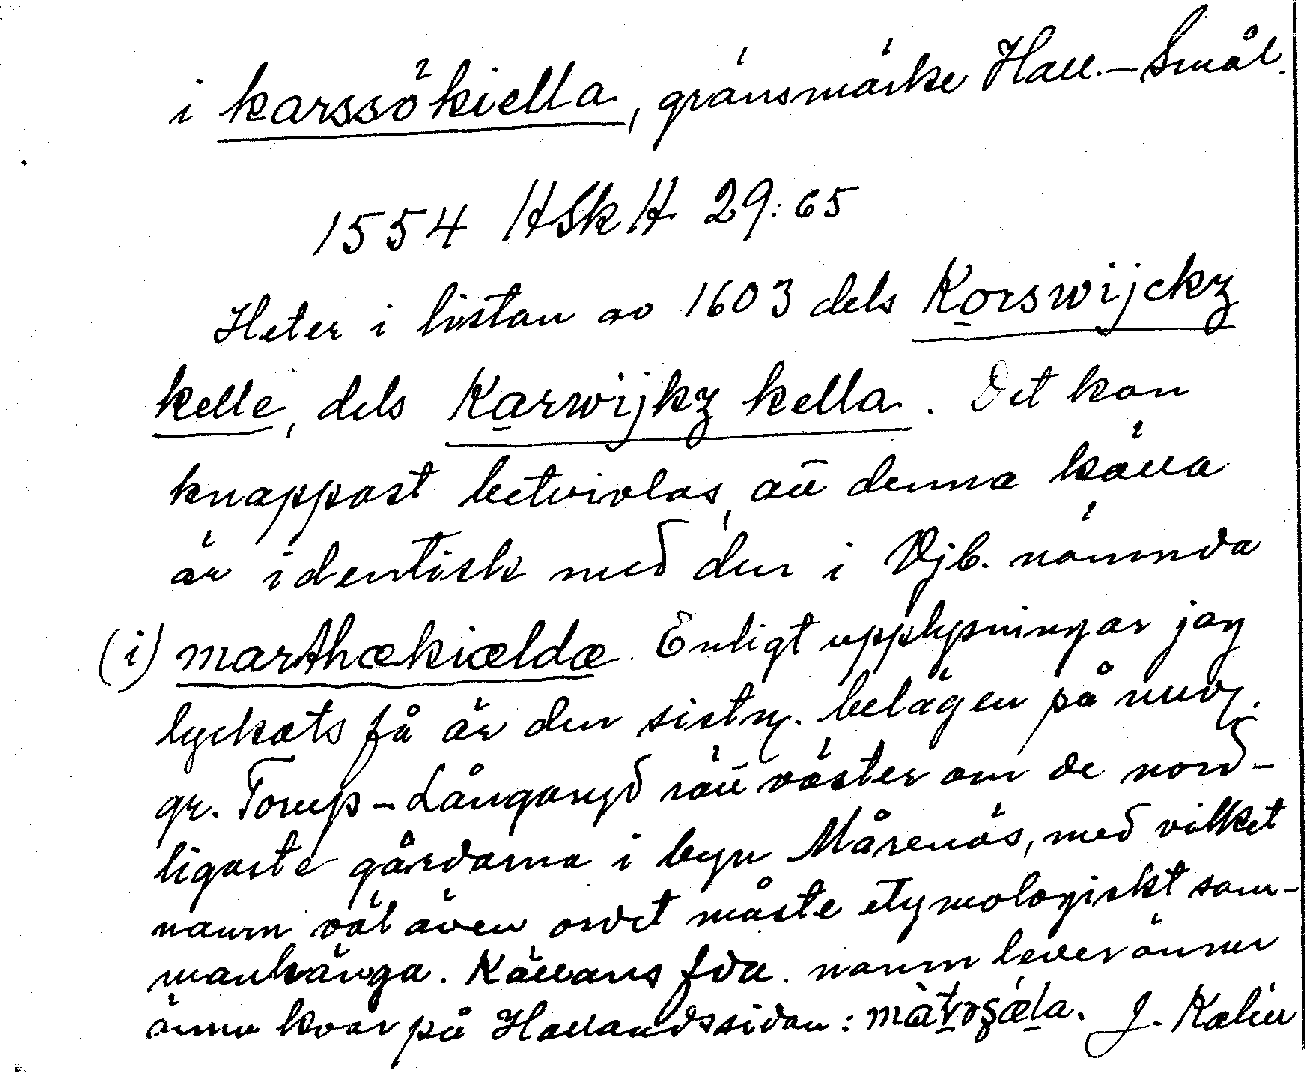 i karssökiella, gränsmärke Hall.–Smål.
1554 HSkH 29:65
Heter i listan av 1603 dels Korswijckz
kelle, dels Karwijkz kella. Det kan
knappast betvivlas, att denna källa
är identisk med den i Vjb. nämnda
(i) marthækiældæ. Enligt upplysningar jag
lyckats få är den sistn. belägen på nuv.
gr. Torup–Långaryd rätt väster om de nord-
ligaste gårdarna i byn Mårenäs, med vilket
namn väl även ordet måste etymologiskt sam-
manhänga. Källans fda. namn lever ännu
ännu kvar på Hallandssidan: J. Kalén